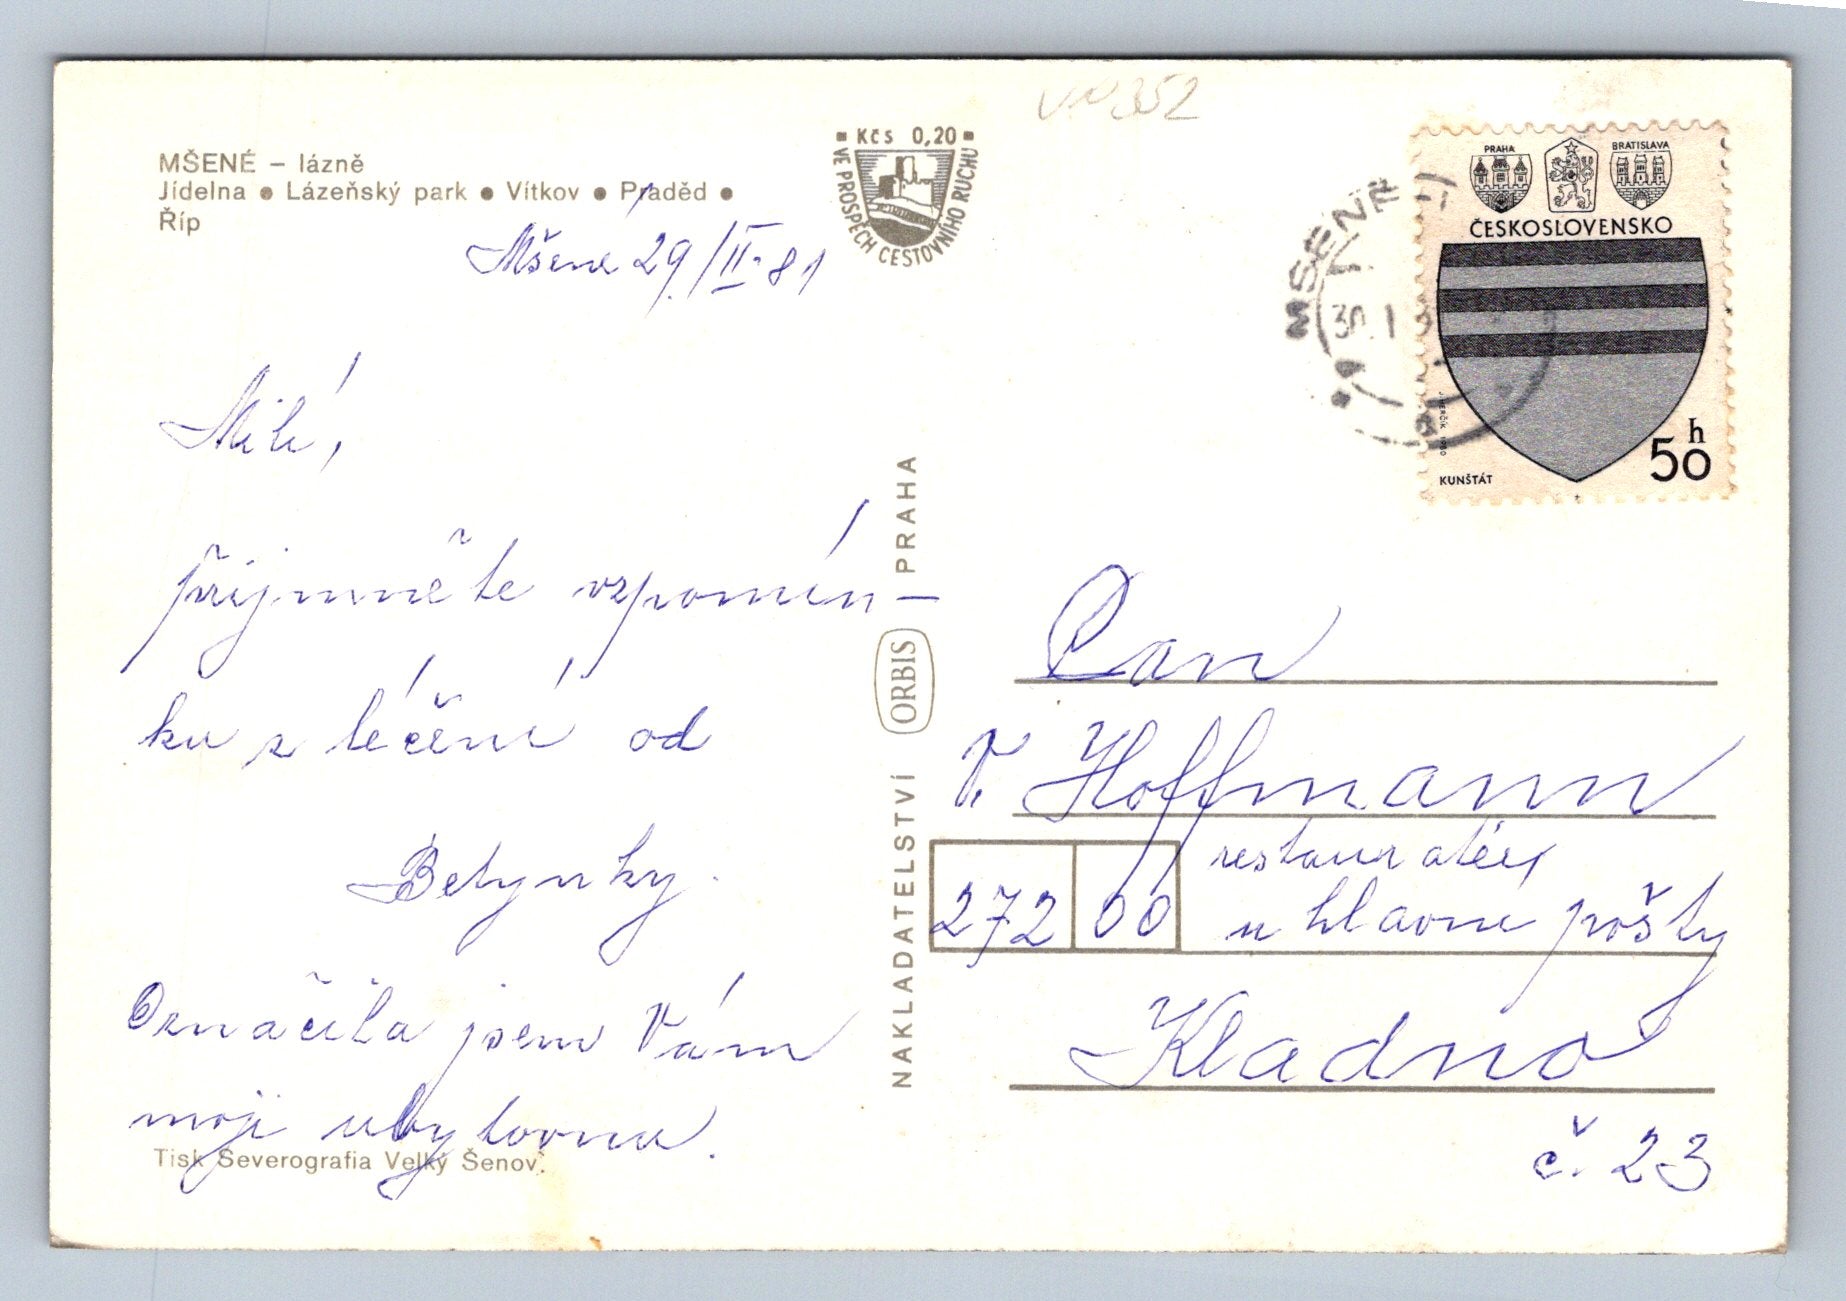 MŠENÉ – lázně
Jídelna ● Lázeňský park ● Vítkov ● Praděd ●
Říp
Kčs 0,20
VE PROSPĚCH CESTOVNÍHO RUCHU
352
Mšené 29/II-81
Milí,
přijmměte vzpomín–
ku z léčení od
Betynky.
Označila jsem Vám
moji ubytovnu.
Tisk Severografia Velký Šenov
NAKLADATELSTVÍ ORBIS PRAHA
MŠENÉ
30.1
PRAHA
BRATISLAVA
ČESKOSLOVENSKO
50 h
KUNŠTÁT
Pan
V. Hoffmann
restauratér
272 00
u hlavní pošty
Kladno
č. 23